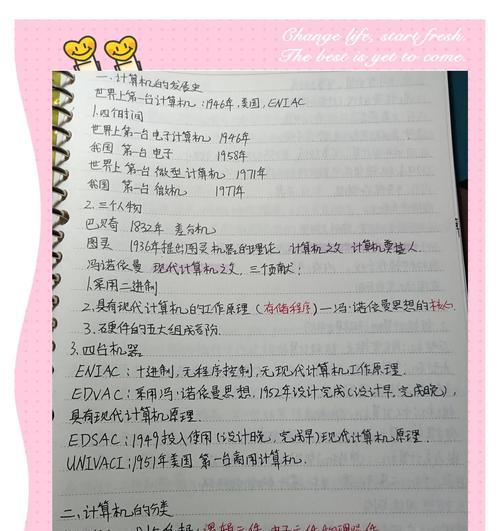 Change life, start fresh.
The best is yet to come.
一.计算机的发展史
世界上第一台计算机:1946年,美国,ENIAC
1.四个时间
世界上第一台电子计算机 1946年
我国 第一台电子 1958年
世界上第一台微型计算机 1971年
我国 第一台微机 1977年
2.三个人物
巴贝奇 1832年 差分机
图灵 1936年提出图灵机器的理论 计算机之父 计算机奠基人
冯诺依曼 现代计算机之父,三个贡献:
1.采用二进制
2.具有现代计算机的工作原理(存储程序)—冯·诺依曼思想的核心
3.硬件的五大组成部份
3.四台机器
ENIAC:十进制,无程序控制,无现代计算机工作原理.
EDVAC:采用冯·诺依曼思想,1952年设计完成(设计早,完成晚),
具有现代计算机原理.
EDSAC:1949投入使用(设计晚,完成早)现代计算机原理.
UNIVACI:1951年美国 第一台商用计算机.
二.计算机的分类